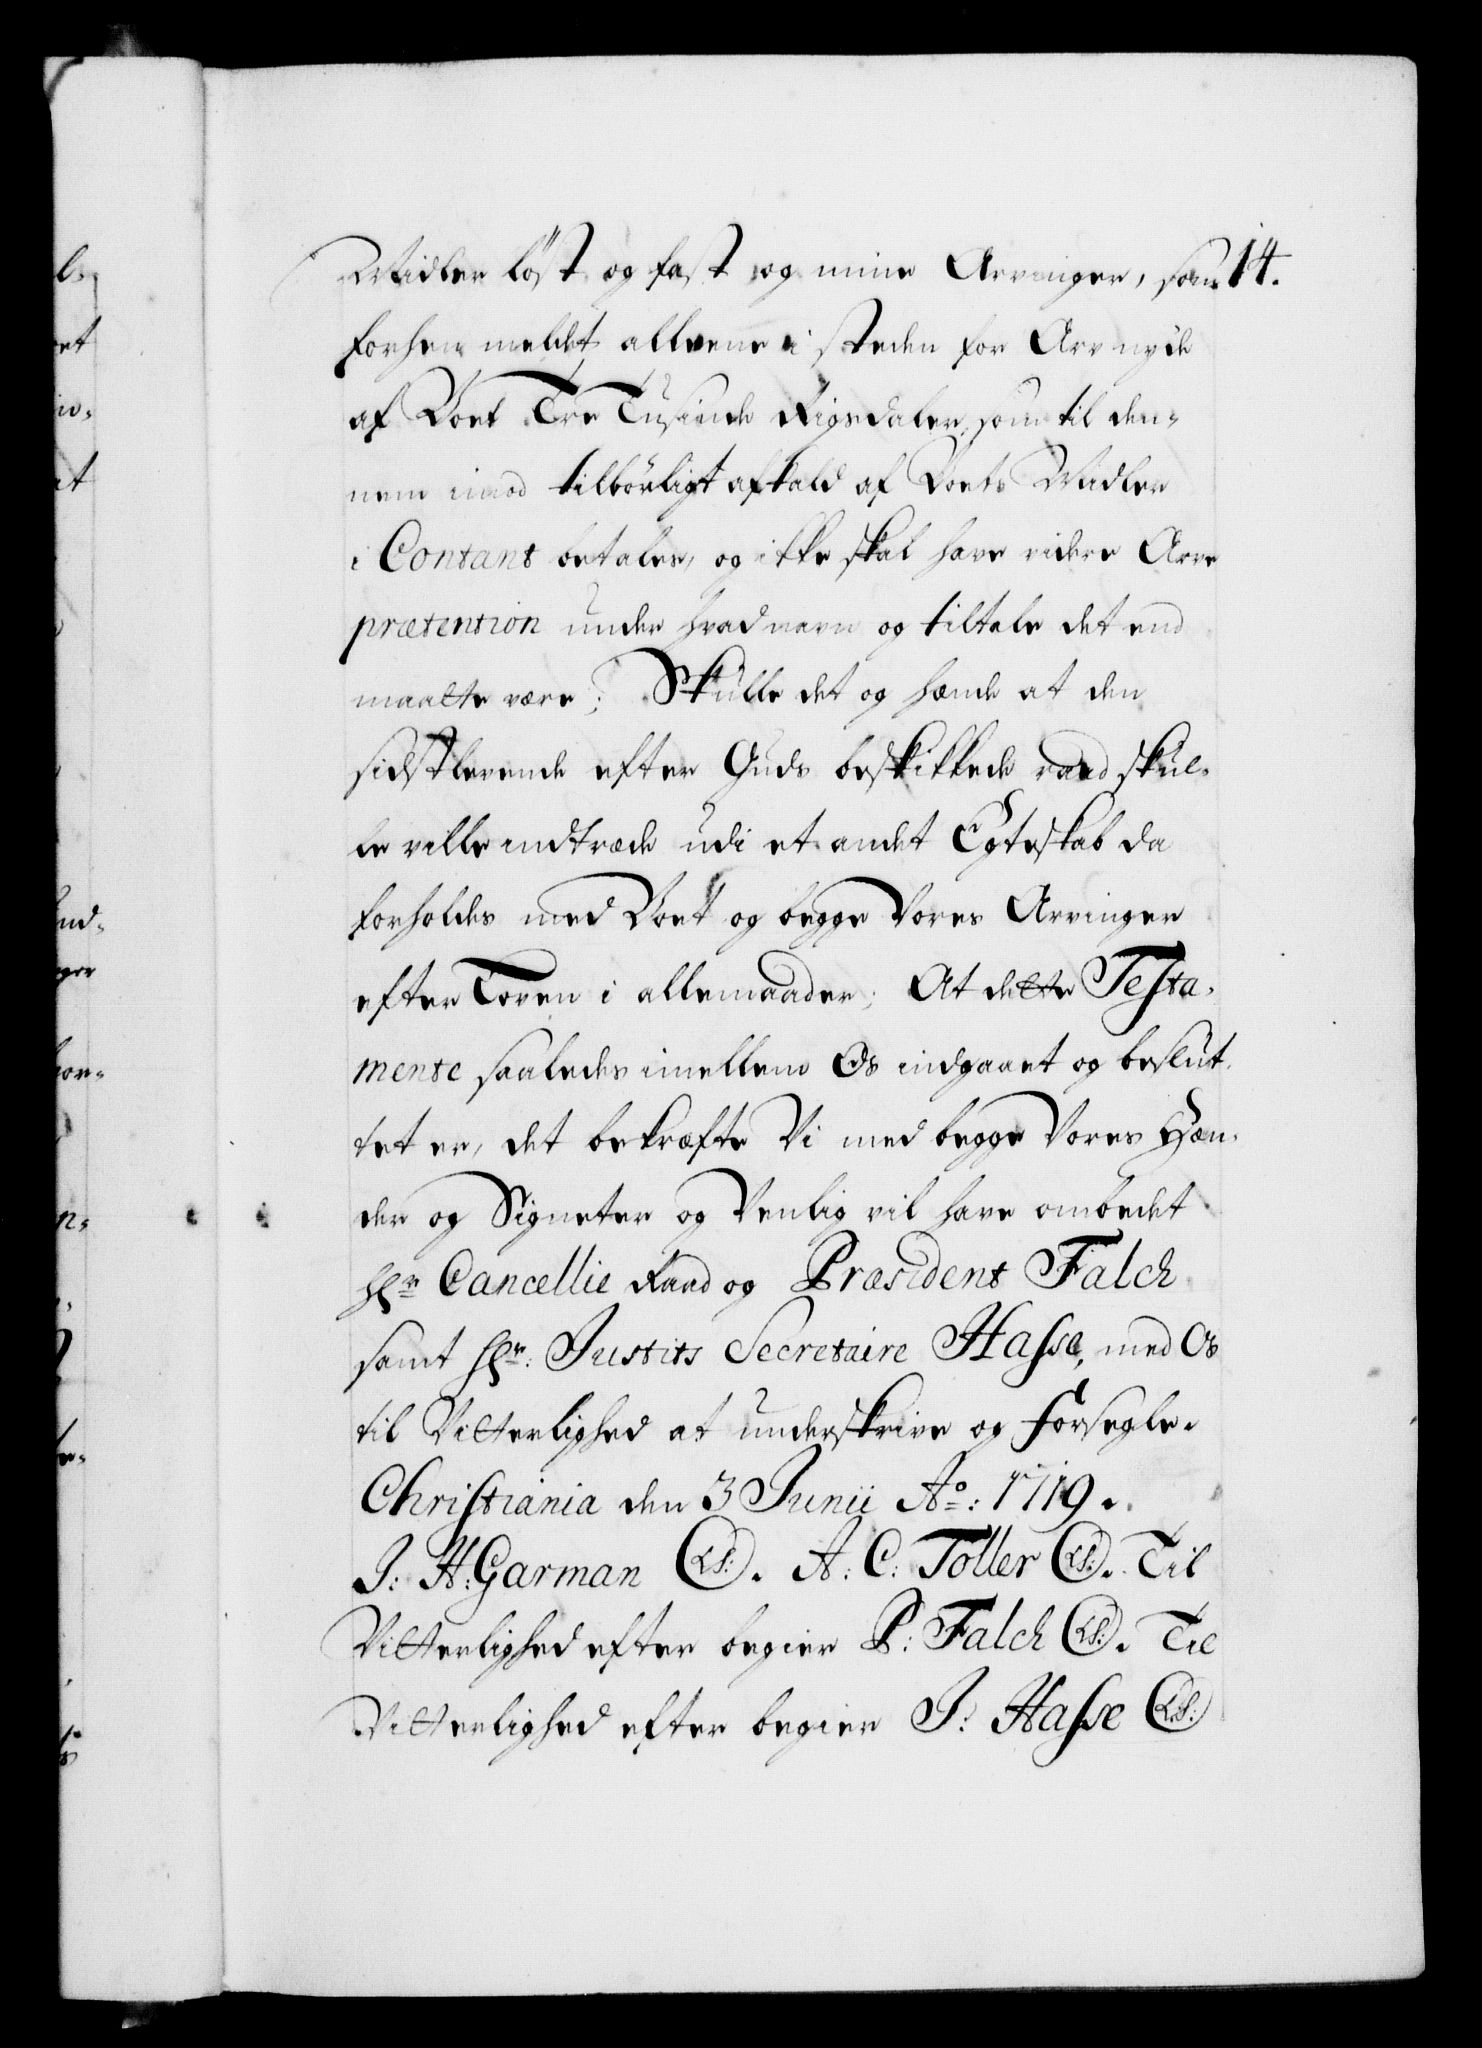 Midler löst og fast og mine Arvinger, som 14.
forhen meldet allene i steden for Arv nyde
af Boet Tre Tusinde Rigsdaler, som til den-
nem imod tilbörligt afkald af Boets Midler
i Contant betales, og ikke skal have videre Arve
prætention under hvad navn og tiltale det end
maatte være; Skulle det og hænde at den
sidstlevende efter Guds beskikkede raad skul-
le ville indtræde udi et andet Egteskab da
forholdes med Boet og begge Vores Arvinger
efter Loven i allemaader; At dette Testa-
mente saaledes imellem Os indgaaet og beslut-
tet er, det bekræfte Vi med begge Vores Hæn-
der og Signeter og Venlig vil have ombedet
Hr Cancellie Raad og Præsident Falch
samt Hr: Justits Secretaire Hasse, med Os
til Vitterlighed at underskrive og forsegle.
Christiania den 3 Junii Ao: 1719.
J: H: Garman (LS:). A: C: Toller (LS:). Til
Vitterlighed efter begier P: Falch (LS:). Til
Vitterlighed efter begier J: Hasse (LS:)